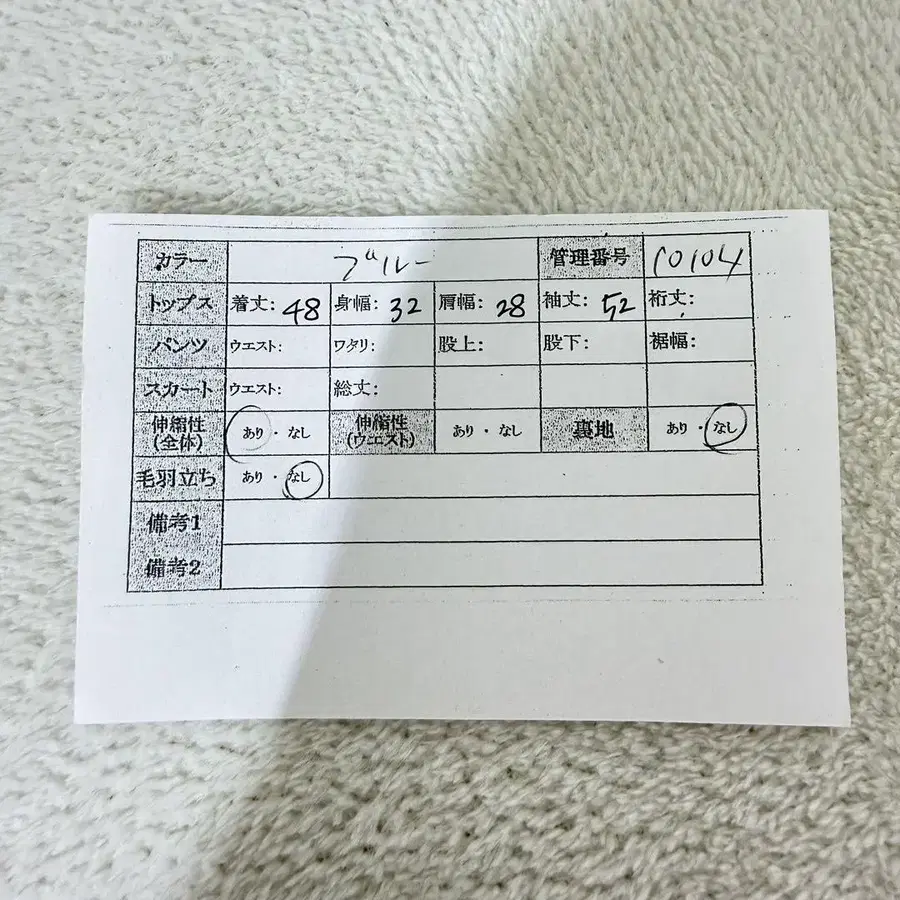 カラー ブルー 管理番号 10104
トップス 着丈: 48 身幅: 32 肩幅: 28 袖丈: 52 裄丈:
パンツ ウエスト: ワタリ: 股上: 股下: 裾幅:
スカート ウエスト: 総丈:
伸縮性(全体) あり・なし 伸縮性(ウエスト) あり・なし 裏地 あり・なし
毛羽立ち あり・なし
備考1
備考2